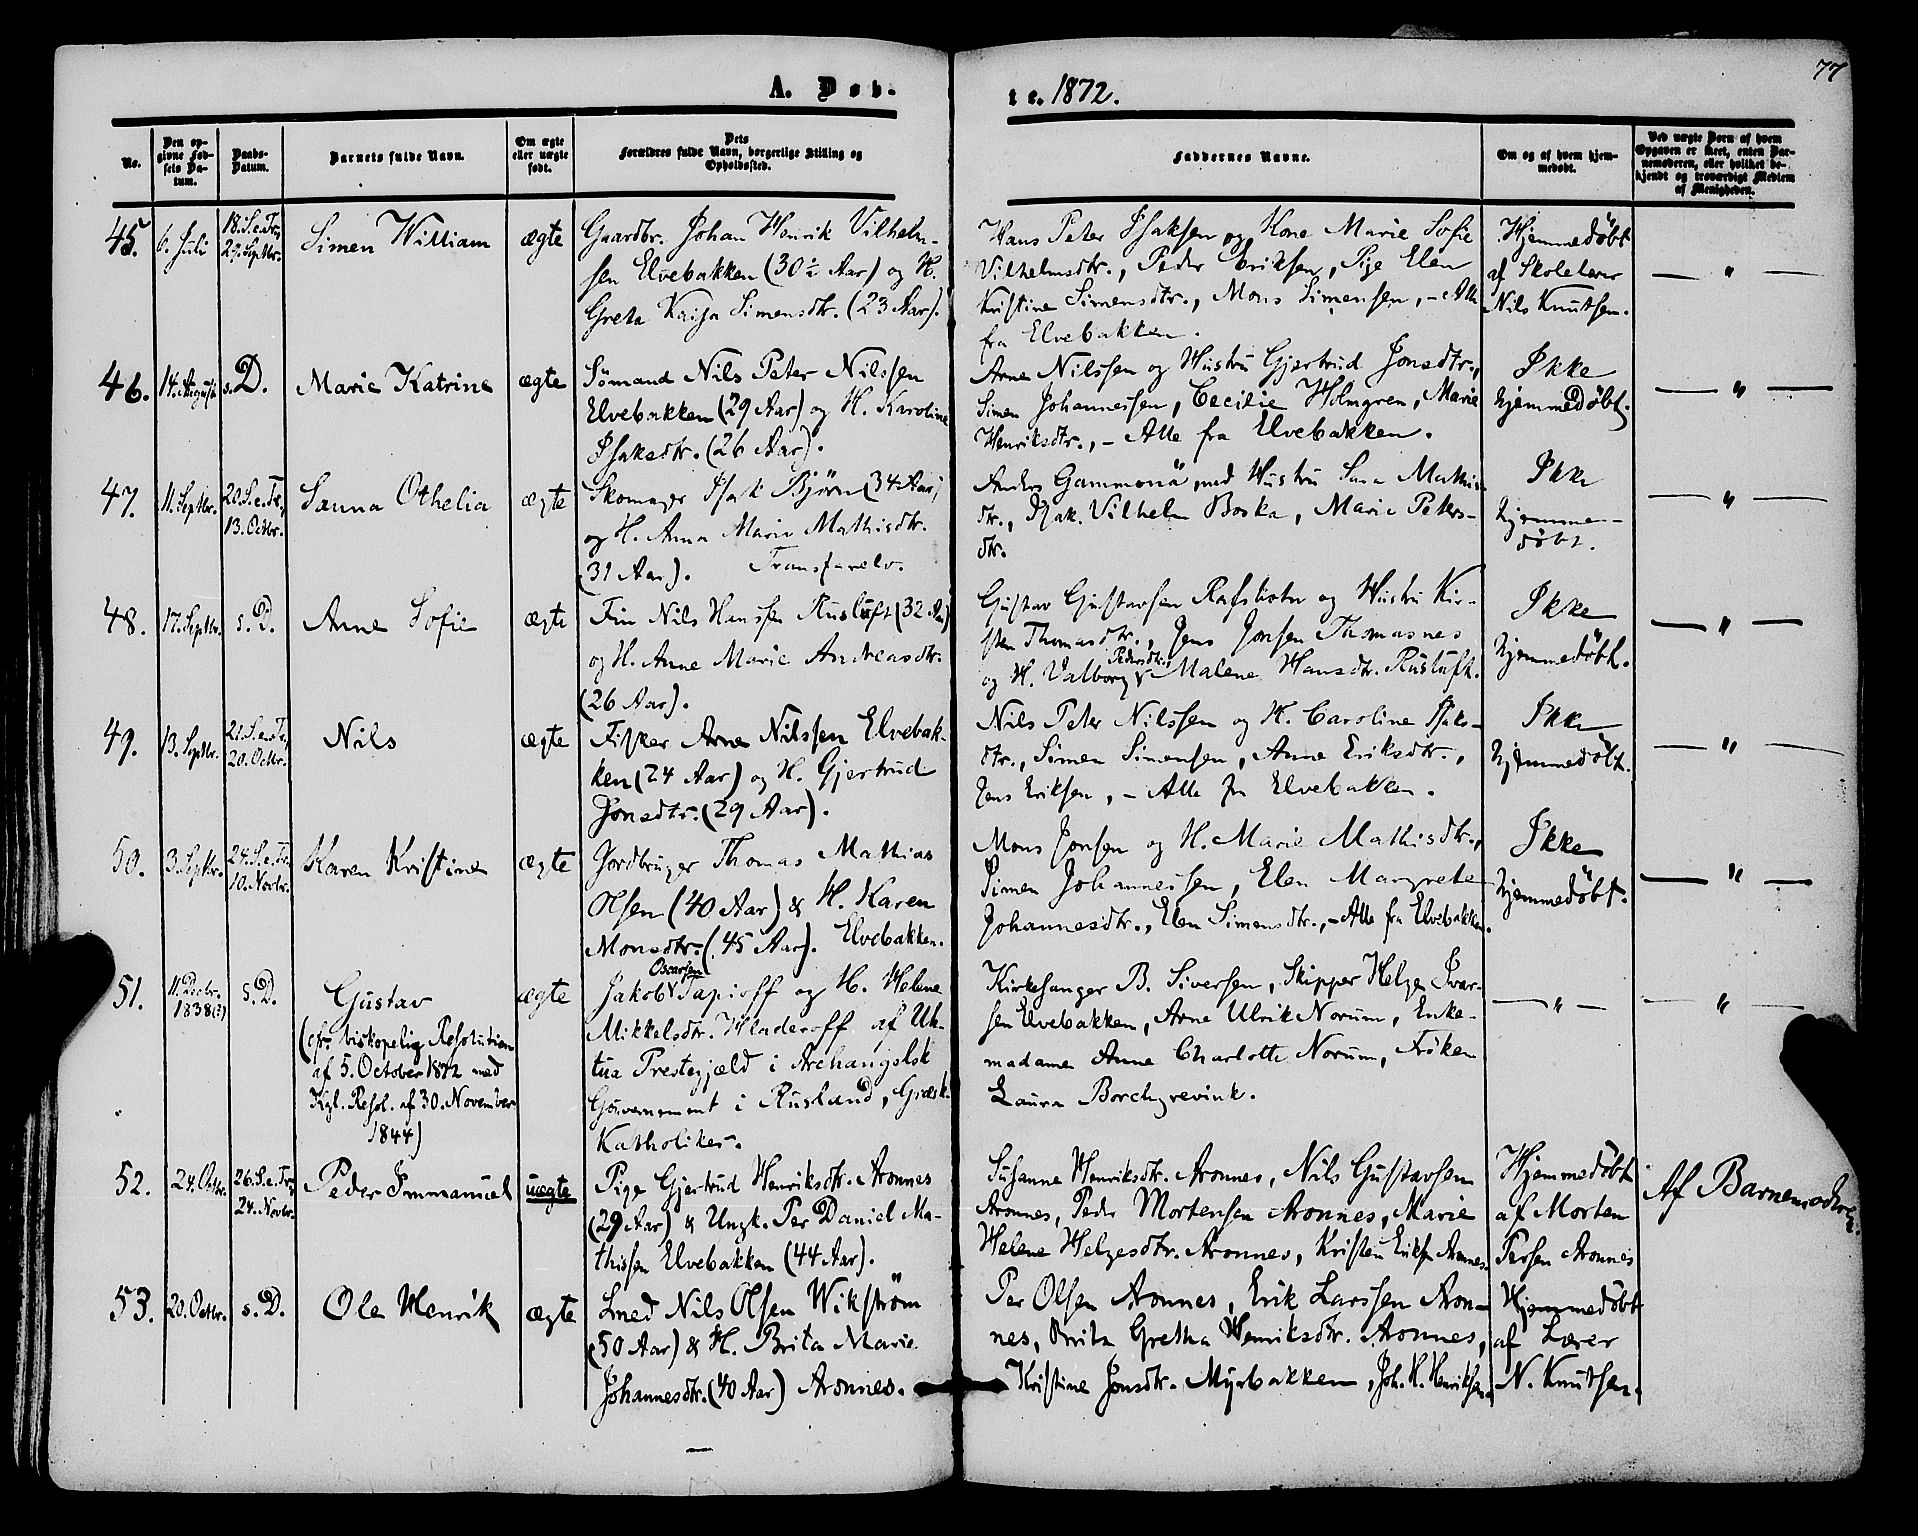 A. Døb-
te. 1872.
77
No.
Den op-
givne Fød-
sels Da-
tum.
Daabs-
Datum.
Barnets fulde Navn.
Om ægte
eller uægte
født.
Dets
Forældres fulde Navn, borgerlige Stilling og
Opholdssted.
Faddernes Navne.
Om og af hvem hjem-
medøbt.
Ved uægte Børn af hvem
Opgaven er skeet, enten Bar-
nemoderen, eller hvilket be-
kjendt og troværdigt Medlem
af Menigheden.
45.
6. Juli
18. S. e. Tr.
29. Septbr.
Simen William
ægte
Gaardbr. Johan Henrik Vilhelm-
sen Elvebakken (30½ Aar) og H.
Greta Kaisa Simensdtr. (23 Aar).
Hans Peter Isaksen og Kone Marie Sofie
Vilhelmsdtr., Peder Eriksen, Pige Elen
Kristine Simensdtr., Mons Simensen, - Alle
fra Elvebakken.
Hjemmedøbt
af Skolelærer
Nils Knutsen.
— " —
46.
14. August
s. D.
Marie Katrine
ægte
Sømand Nils Peter Nilssen
Elvebakken (29 Aar) og H. Karoline
Isaksdtr. (26 Aar).
Arne Nilssen og Hustru Gjertrud Jonsdtr.,
Simen Johannessen, Cecilie Holmgren, Marie
Henriksdtr., - Alle fra Elvebakken.
Ikke
hjemmedøbt.
— " —
47.
11. Septbr.
20. S. e. Tr.,
13. Octbr.
Sanna Othelia
ægte
Skomager Isak Bjørn (34 Aar)
og H. Anna Maria Mathisdtr.
(31 Aar). Transfarelv.
Anders Gammonä med Hustru Sara Mathis-
dtr., Isak Vilhelm Boska, Marie Peters-
dtr.
Ikke
hjemme-
døbt.
— " —
48.
17. Septbr.
s. D.
Anne Sofie
ægte
Fin Nils Hansen Rusluft (32 Aar)
og H. Anne Marie Andreasdtr.
(26 Aar).
Gustav Gustavsen Rafsbotn og Hustru Kir-
sten Thomasdtr., Jens Jonsen Thomasnes
og H. Valborg Pedersdtr., Malene Hansdtr. Rusluft.
Ikke
hjemmedøbt.
— " —
49.
13. Septbr.
21. S. e. Tr.,
20. Octbr.
Nils
ægte
Fisker Arne Nilssen Elvebak-
ken (24 Aar) og H. Gjertrud
Jonsdtr. (29 Aar).
Nils Peter Nilssen og H. Caroline Isaks-
dtr., Simen Simensen, Anne Eriksdtr.,
Jens Eriksen, - Alle fra Elvebakken.
Ikke
hjemmedøbt.
— " —
50.
3. Septbr.
24. S. e. Tr.
10. Novbr.
Karen Kristine
ægte
Jordbruger Thomas Mathias
Olsen (40 Aar) & H. Karen
Monsdtr. (45 Aar). Elvebakken.
Mons Jonsen og H. Marie Mathisdtr.,
Simen Johannessen, Elen Margrete
Johannesdtr., Elen Simensdtr., - Alle fra Elvebakken.
Ikke
hjemmedøbt.
— " —
51.
11. Decbr.
1838(?)
s. D.
Gustav
(cfr. biskopelig Resolution
af 5. October 1872 med
Kgl. Resol. af 30. November
1844)
ægte
Jakob Oscarsen Tapioff og H. Helene
Mikkelsdtr. Hladeroff af Uh-
tua Prestegjæld i Archangelsk
Gouvernement i Rusland, Græsk-
Katholiker.
Kirkesanger B. Siversen, Skipper Helge Ivar-
sen Elvebakken, Arne Ulrik Norum, Enke-
madame Anne Charlotte Norum, Frøken
Laura Borchgrevink.
— " —
— " —
52.
24. Octbr.
26. S. e. Tr.,
24. Novbr.
Peder Immanuel
uægte
Pige Gjertrud Henriksdtr. Aronnes
(29 Aar) & Ungk. Per Daniel Ma-
thissen Elvebakken (44 Aar).
Susanne Henriksdtr. Aronnes, Nils Gustavsen
Aronnes, Peder Mortensen Aronnes, Marie
Helene Helgesdtr. Aronnes, Kristen Eriksen Aronnes.
Hjemmedøbt
af Morten
Persen Aronnes
Af Barnemoderen.
53.
20. Octbr.
s. D.
Ole Henrik
ægte
Smed Nils Olsen Wikström
(50 Aar) & H. Brita Marie
Johannesdtr. (40 Aar) Aronnes.
Per Olsen Aronnes, Erik Larssen Aron-
nes, Brita Gretha Henriksdtr. Aronnes,
Kristine Jonsdtr. Myrbakken, Joh. H. Henriksen.
Hjemmedøbt
af Lærer
N. Knutsen.